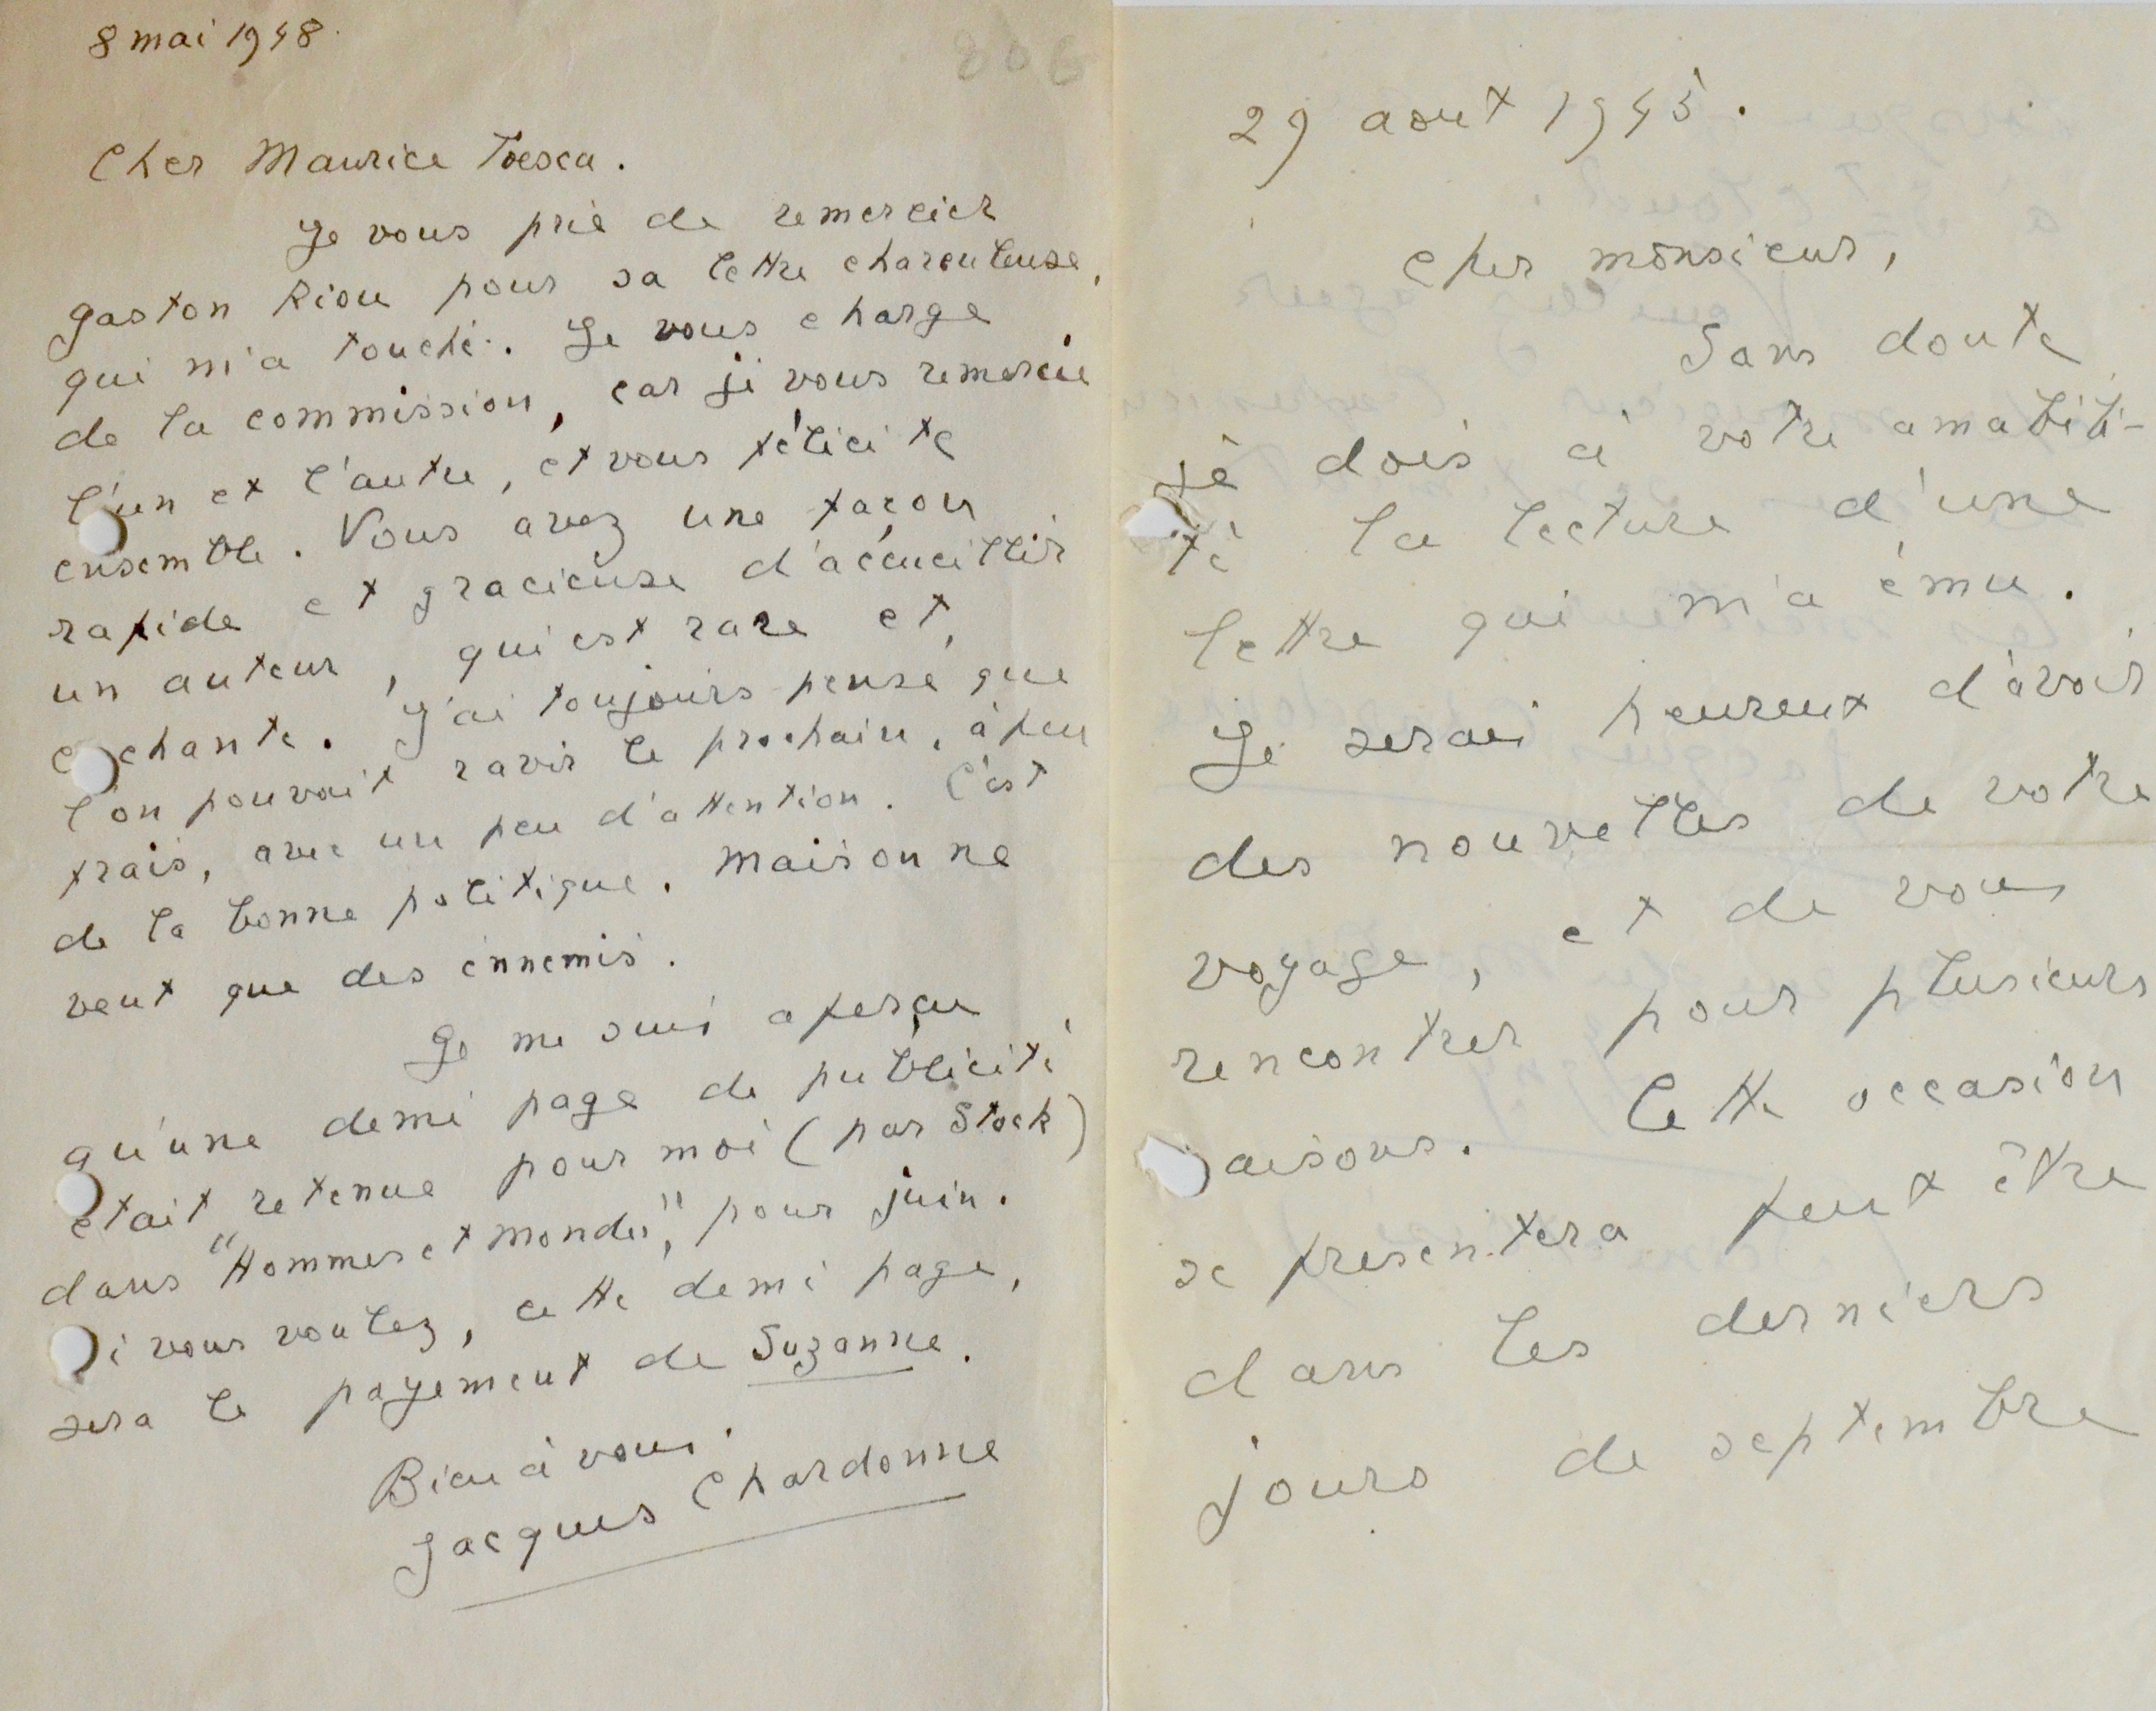 8 mai 1948.
Cher Maurice Toesca.
Je vous prie de remercier
gaston Riou pour sa lettre chaleureuse,
qui m'a touché. Je vous charge
de la commission, car je vous remercie
l'un et l'autre, et vous félicite
ensemble. Vous avez une façon
rapide et gracieuse d'accueillir
un auteur, qui est rare et
enchante. J'ai toujours pensé que
l'on pouvait ravir le prochain, à peu
frais, avec un peu d'attention. C'est
de la bonne politique. Mais on ne
veut que des ennemis.
Je me suis aperçu
qu'une demi page de publicité
etait retenue pour moi (par Stock)
dans "Hommes et mondes", pour juin.
Si vous voulez, cette demi page,
sera le payement de Suzanne.
Bien à vous.
Jacques Chardonne
29 aout 1945.
cher monsieur,
Sans doute
je dois à votre amabili-
té la lecture d'une
lettre qui m'a ému.
Je serai heureux d'avoir
des nouvelles de votre
voyage, et de vous
rencontrer pour plusieurs
raisons. Cette occasion
se presentera peut être
dans les derniers
jours de septembre